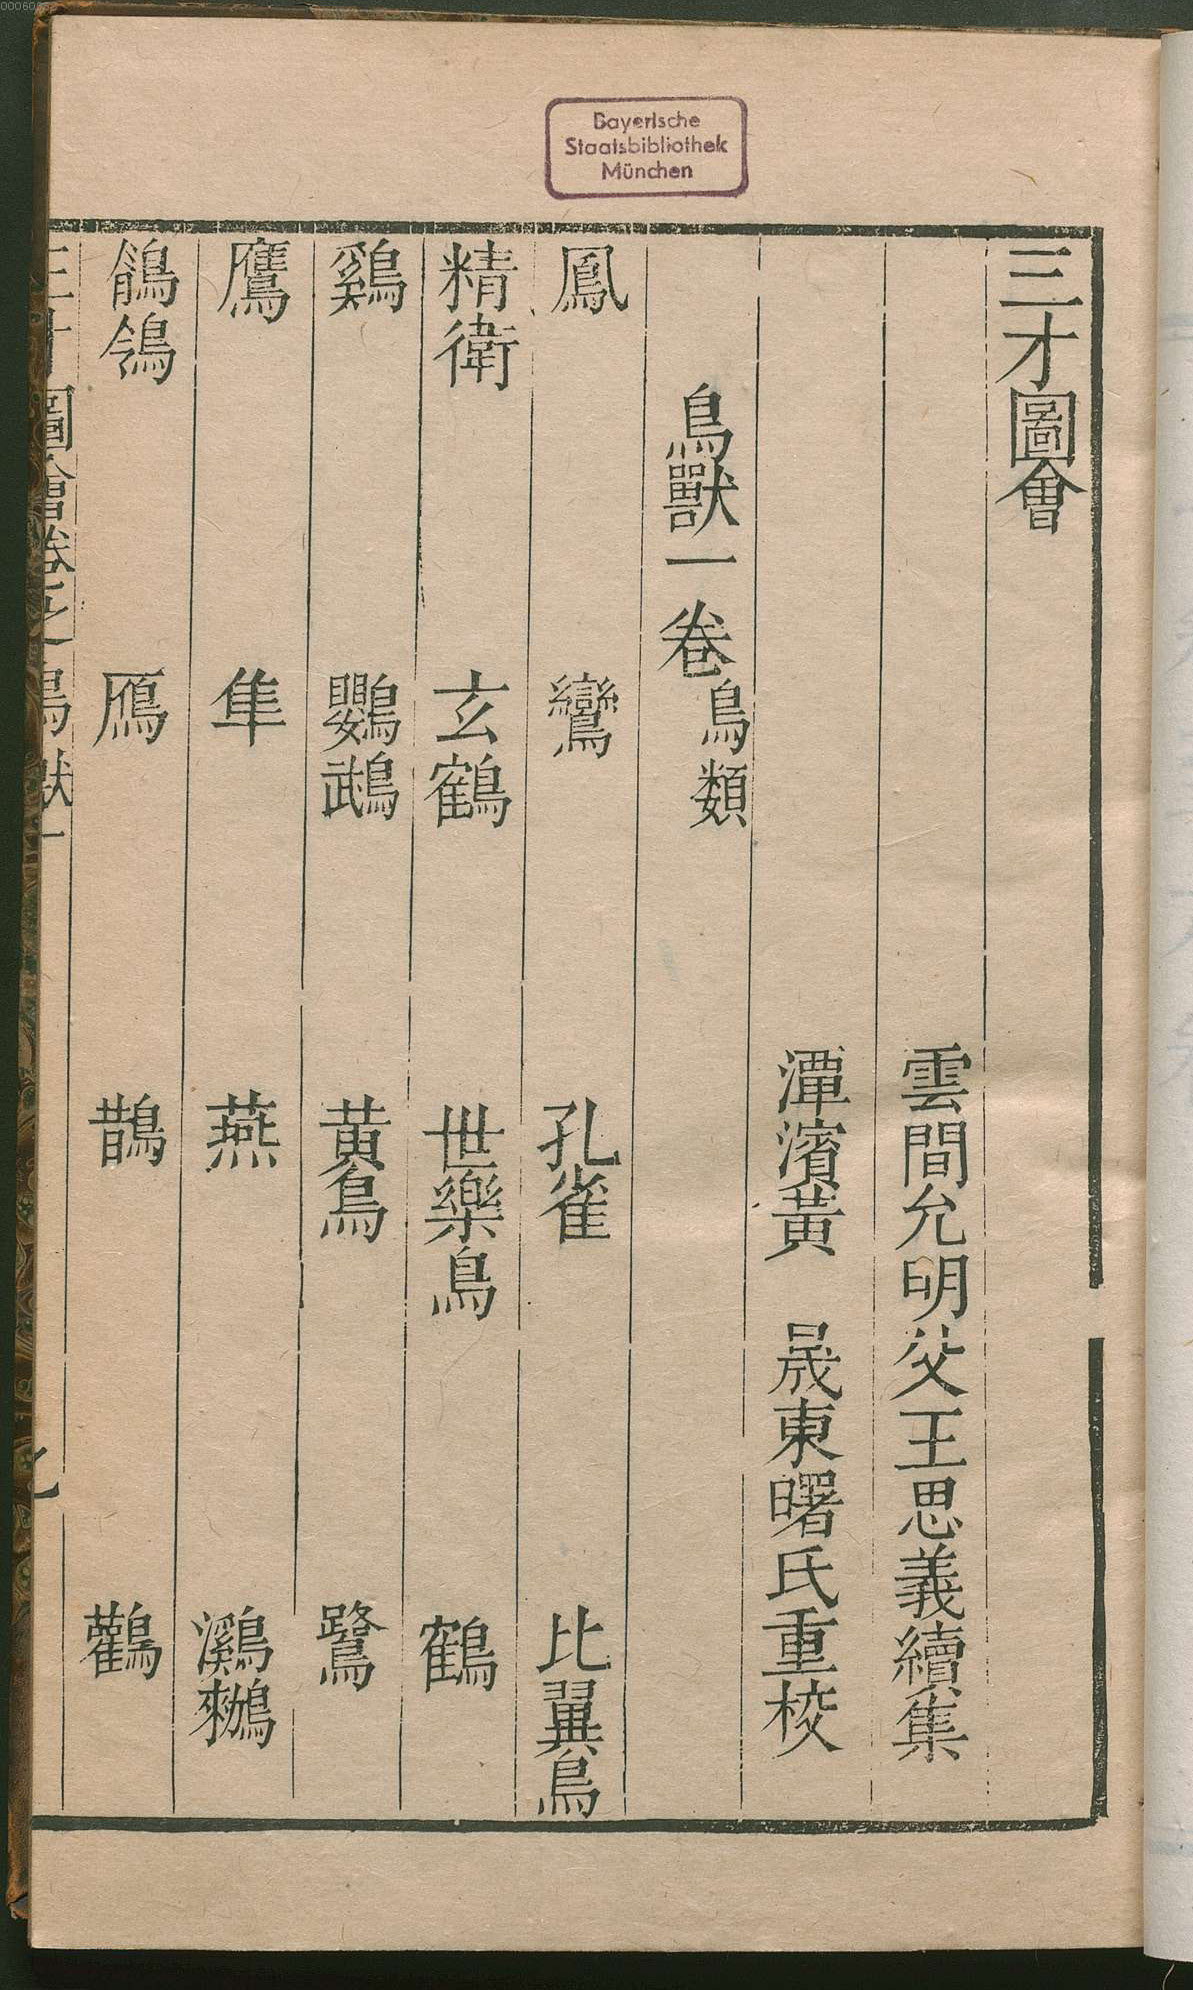 Bayerische
Staatsbibliothek
München
三才圖會
雲間允明父王思義續集
潭濱黃 晟東曙氏重校
鳥獸一卷 鳥類
鳳 鸞 孔雀 比翼鳥
精衛 玄鶴 世樂鳥 鶴
鷄 鸚鵡 黄鳥 鷺
鷹 隼 燕 鸂鶒
鶺鴒 鴈 鵲 鸛
三才圖會卷之鳥獸一